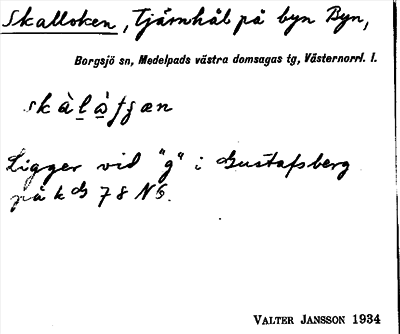 Skalloken, Tjärnhål på byn Byn,
Borgsjö sn, Medelpads västra domsagas tg, Västernorrl. l.
skàl̲à̲fʒæn
Ligger vid "g" i Gustafsberg
på k 78 NÖ.
VALTER JANSSON 1934